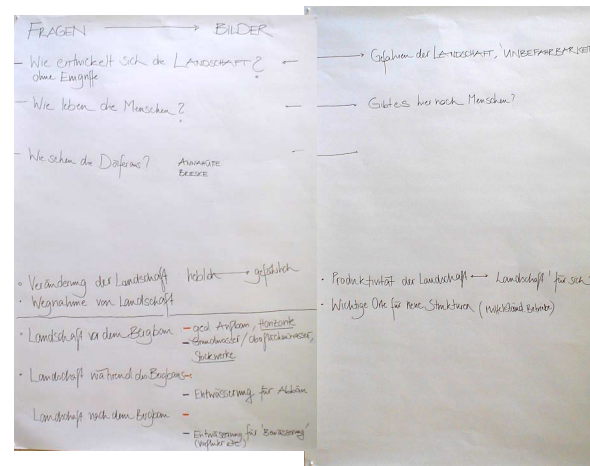 FRAGEN → BILDER
– Wie entwickelt sich die LANDSCHAFT?
ohne Eingriffe
– Wie leben die Menschen?
– Wie sehen die Dörfer aus?
ANNAHÜTE
BRESKE
• Veränderung der Landschaft lieblich → gefährlich
• Wegnahme von Landschaft
• Landschaft vor dem Bergbau – geol. Aufbau, Horizonte
– Grundwasser/Oberflächenwasser,
Stockwerke
• Landschaft während des Bergbaus –
– Entwässerung für Abbau
Landschaft nach dem Bergbau –
– Entwässerung für "Bewässerung"
→ Gefahren der LANDSCHAFT, 'UNBEFAHRBARKEIT
→ Gibt es hier noch Menschen?
• Produktivität der Landschaft ↔ Landschaft 'für sich'
• Wichtige Orte für neue Strukturen